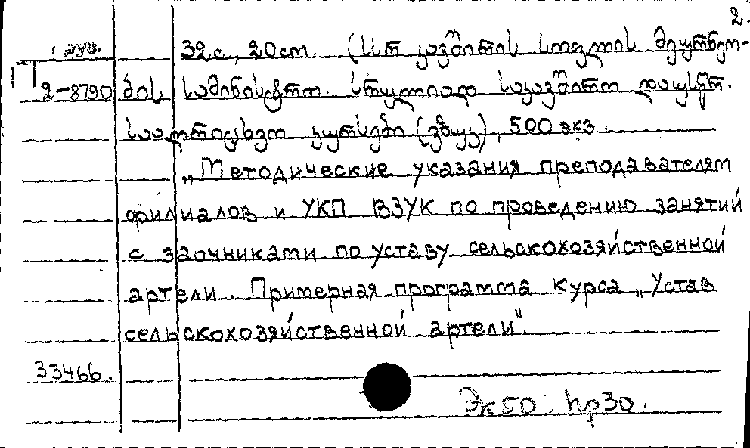 2.
32с., 20cm. (სსრ კავშირის სოფლის მეურნეო-
2-8790 ბის სამინისტრო. სრულიად საკავშირო დაუსწრ.
სააღრიცხვო კურსები (ვზუკ), 500 экз.
„Методические указания преподавателям
филиалов и УКП ВЗУК по проведению занятий
с заочниками по уставу сельскохозяйственной
артели. Примерная программа курса „Устав
сельскохозяйственной артели".
33466.
Эк50 Нр30.